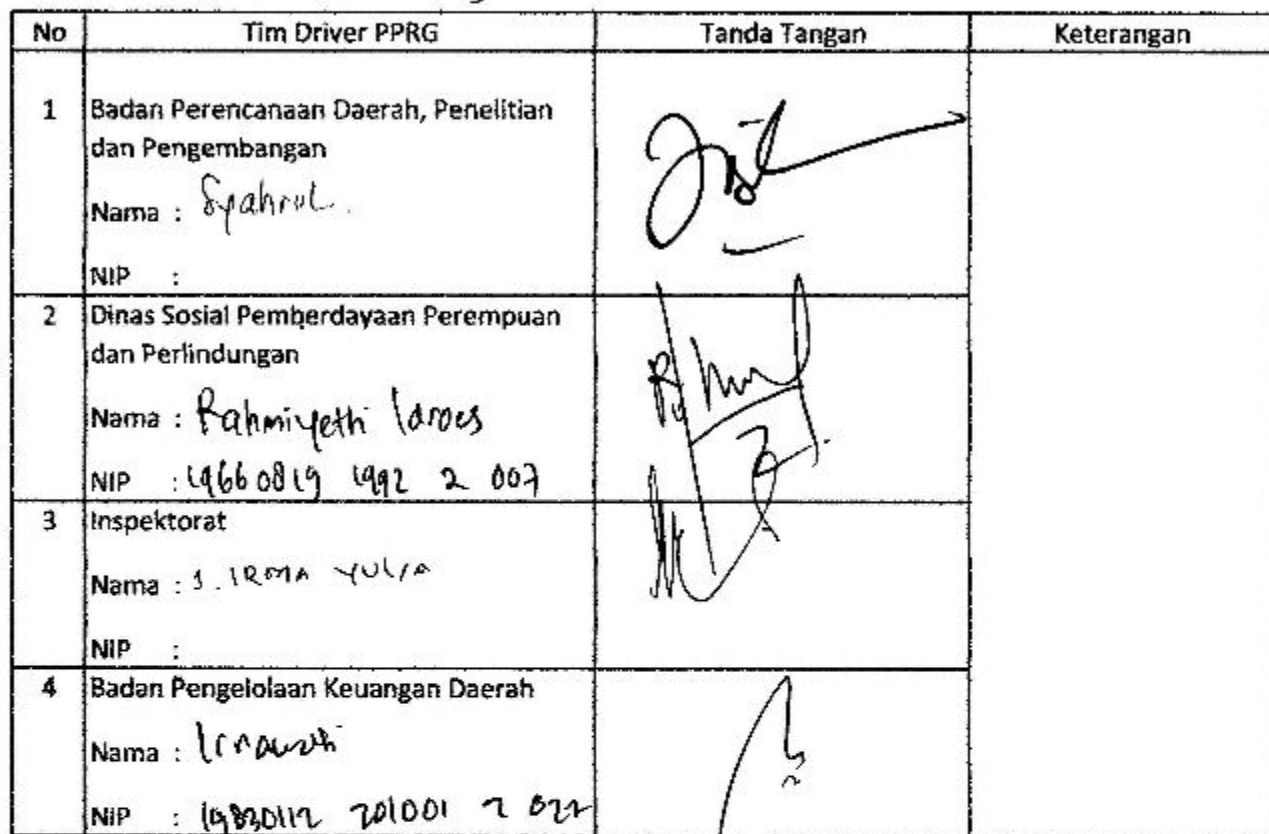 No Tim Driver PPRG Tanda Tangan Keterangan
1 Badan Perencanaan Daerah, Penelitian
dan Pengembangan
Nama : Syahrul.
NIP :
2 Dinas Sosial Pemberdayaan Perempuan
dan Perlindungan
Nama : Rahmiyetti Idroes
NIP : 19660819 1992 2 007
3 Inspektorat
Nama : IRMA YULIA
NIP :
4 Badan Pengelolaan Keuangan Daerah
Nama :
NIP : 19830112 201001 2 022